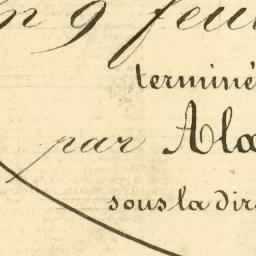 n 9 feu
terminé
par Alex
sous la dir